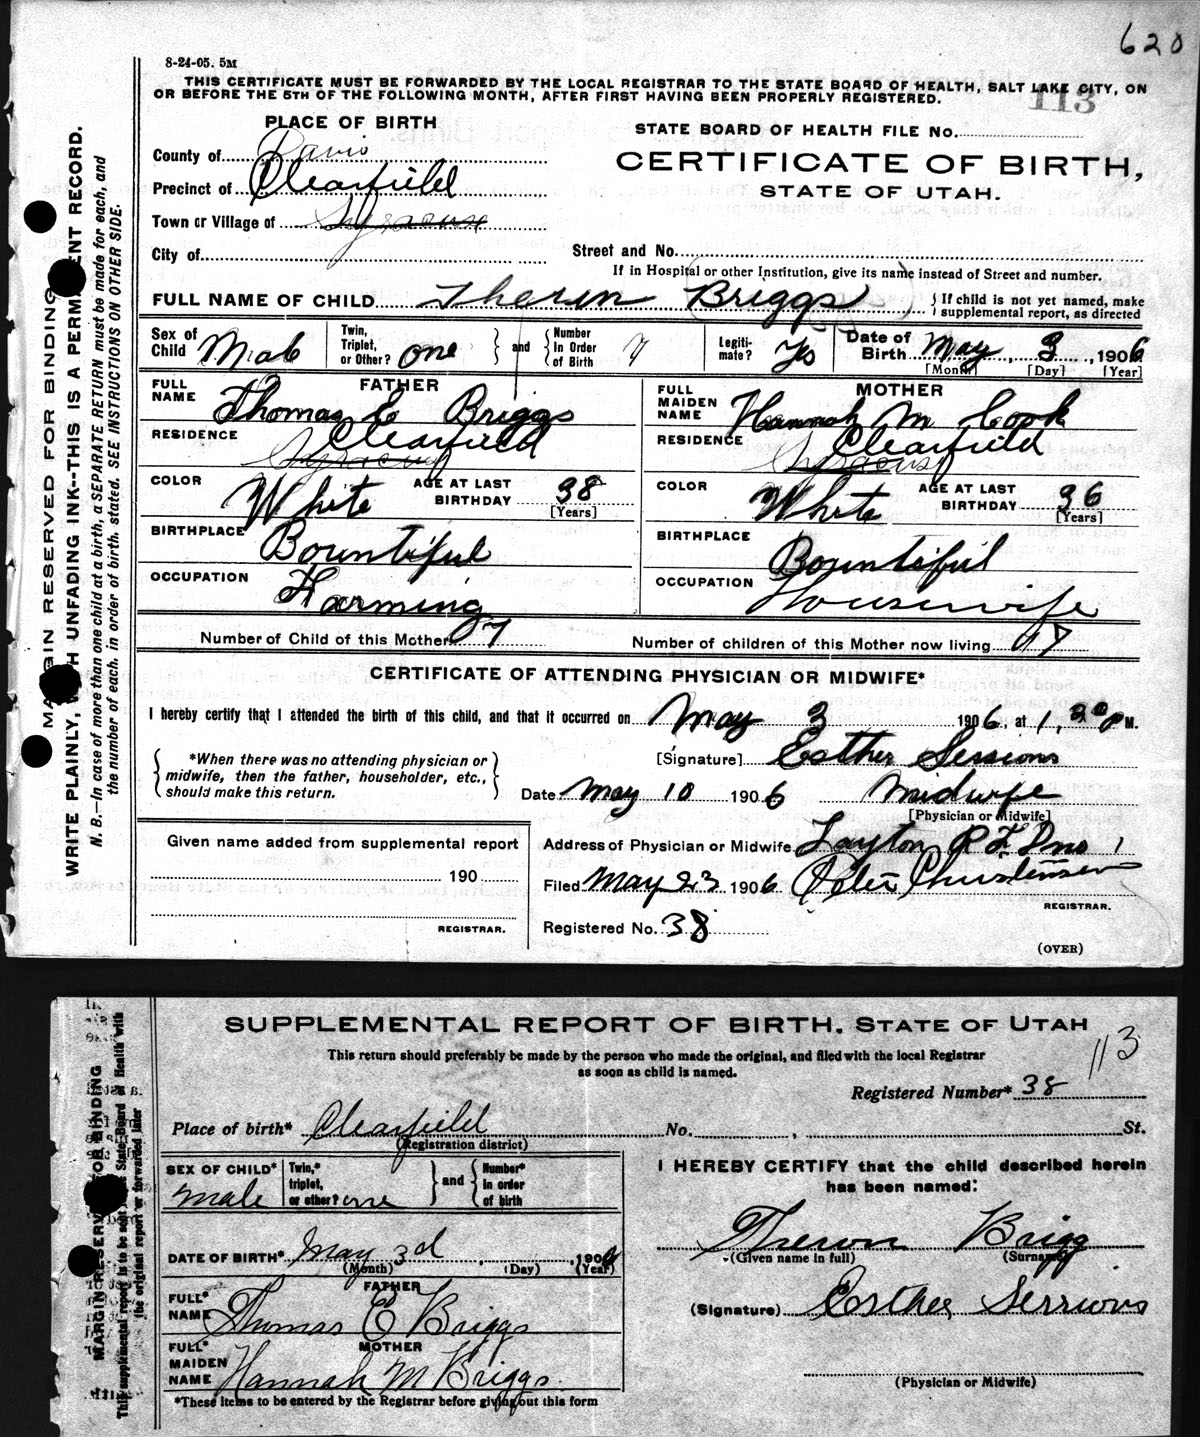 620
8-24-05. 5M
THIS CERTIFICATE MUST BE FORWARDED BY THE LOCAL REGISTRAR TO THE STATE BOARD OF HEALTH, SALT LAKE CITY, ON
OR BEFORE THE 5TH OF THE FOLLOWING MONTH, AFTER FIRST HAVING BEEN PROPERLY REGISTERED.
113
PLACE OF BIRTH
County of Davis
Precinct of Clearfield
Town or Village of Syracuse
City of
STATE BOARD OF HEALTH FILE No.
CERTIFICATE OF BIRTH,
STATE OF UTAH.
Street and No.
If in Hospital or other Institution, give its name instead of Street and number.
FULL NAME OF CHILD Theron (Briggs)
If child is not yet named, make supplemental report, as directed
Sex of Child Male
Twin, Triplet, or Other? one and Number In Order of Birth 7
Legitimate? Yes
Date of Birth May 3, 1906
[Month] [Day] [Year]
FATHER
FULL NAME Thomas E Briggs
RESIDENCE Clearfield
Syracuse
COLOR White
AGE AT LAST BIRTHDAY 38
[Years]
BIRTHPLACE Bountiful
OCCUPATION Farming
MOTHER
FULL MAIDEN NAME Hannah M Cook
RESIDENCE Clearfield
Syracuse
COLOR White
AGE AT LAST BIRTHDAY 36
[Years]
BIRTHPLACE Bountiful
OCCUPATION Housewife
Number of Child of this Mother 7
Number of children of this Mother now living 7
CERTIFICATE OF ATTENDING PHYSICIAN OR MIDWIFE*
I hereby certify that I attended the birth of this child, and that it occurred on May 3 1906, at 1,30 P M.
*When there was no attending physician or
midwife, then the father, householder, etc.,
should make this return.
[Signature] Esther Sessions
Date May 10 1906 Midwife
[Physician or Midwife]
Given name added from supplemental report
190
REGISTRAR.
Address of Physician or Midwife Layton R F D no 1
Filed May 23 1906 Peter Christensen
REGISTRAR.
Registered No. 38
(OVER)
MARGIN RESERVED FOR BINDING
WRITE PLAINLY, WITH UNFADING INK--THIS IS A PERMANENT RECORD.
N. B.—In case of more than one child at a birth, a SEPARATE RETURN must be made for each, and
the number of each, in order of birth, stated. SEE INSTRUCTIONS ON OTHER SIDE.
SUPPLEMENTAL REPORT OF BIRTH. STATE OF UTAH
113
This return should preferably be made by the person who made the original, and filed with the local Registrar
as soon as child is named.
Registered Number* 38
Place of birth* Clearfield No. , St.
(Registration district)
SEX OF CHILD* male
Twin,* triplet, or other? one and Number* in order of birth
DATE OF BIRTH* May 3d , 1906
(Month) (Day) (Year)
FATHER
FULL* NAME Thomas E Briggs
MOTHER
FULL* MAIDEN NAME Hannah M Briggs
*These items to be entered by the Registrar before giving out this form
I HEREBY CERTIFY that the child described herein
has been named:
Theron Brigg
(Given name in full) (Surname)
(Signature) Esther Sessions
(Physician or Midwife)
MARGIN RESERVED FOR BINDING
This supplemental report is to be sent to the State Board of Health with
the original report or forwarded later